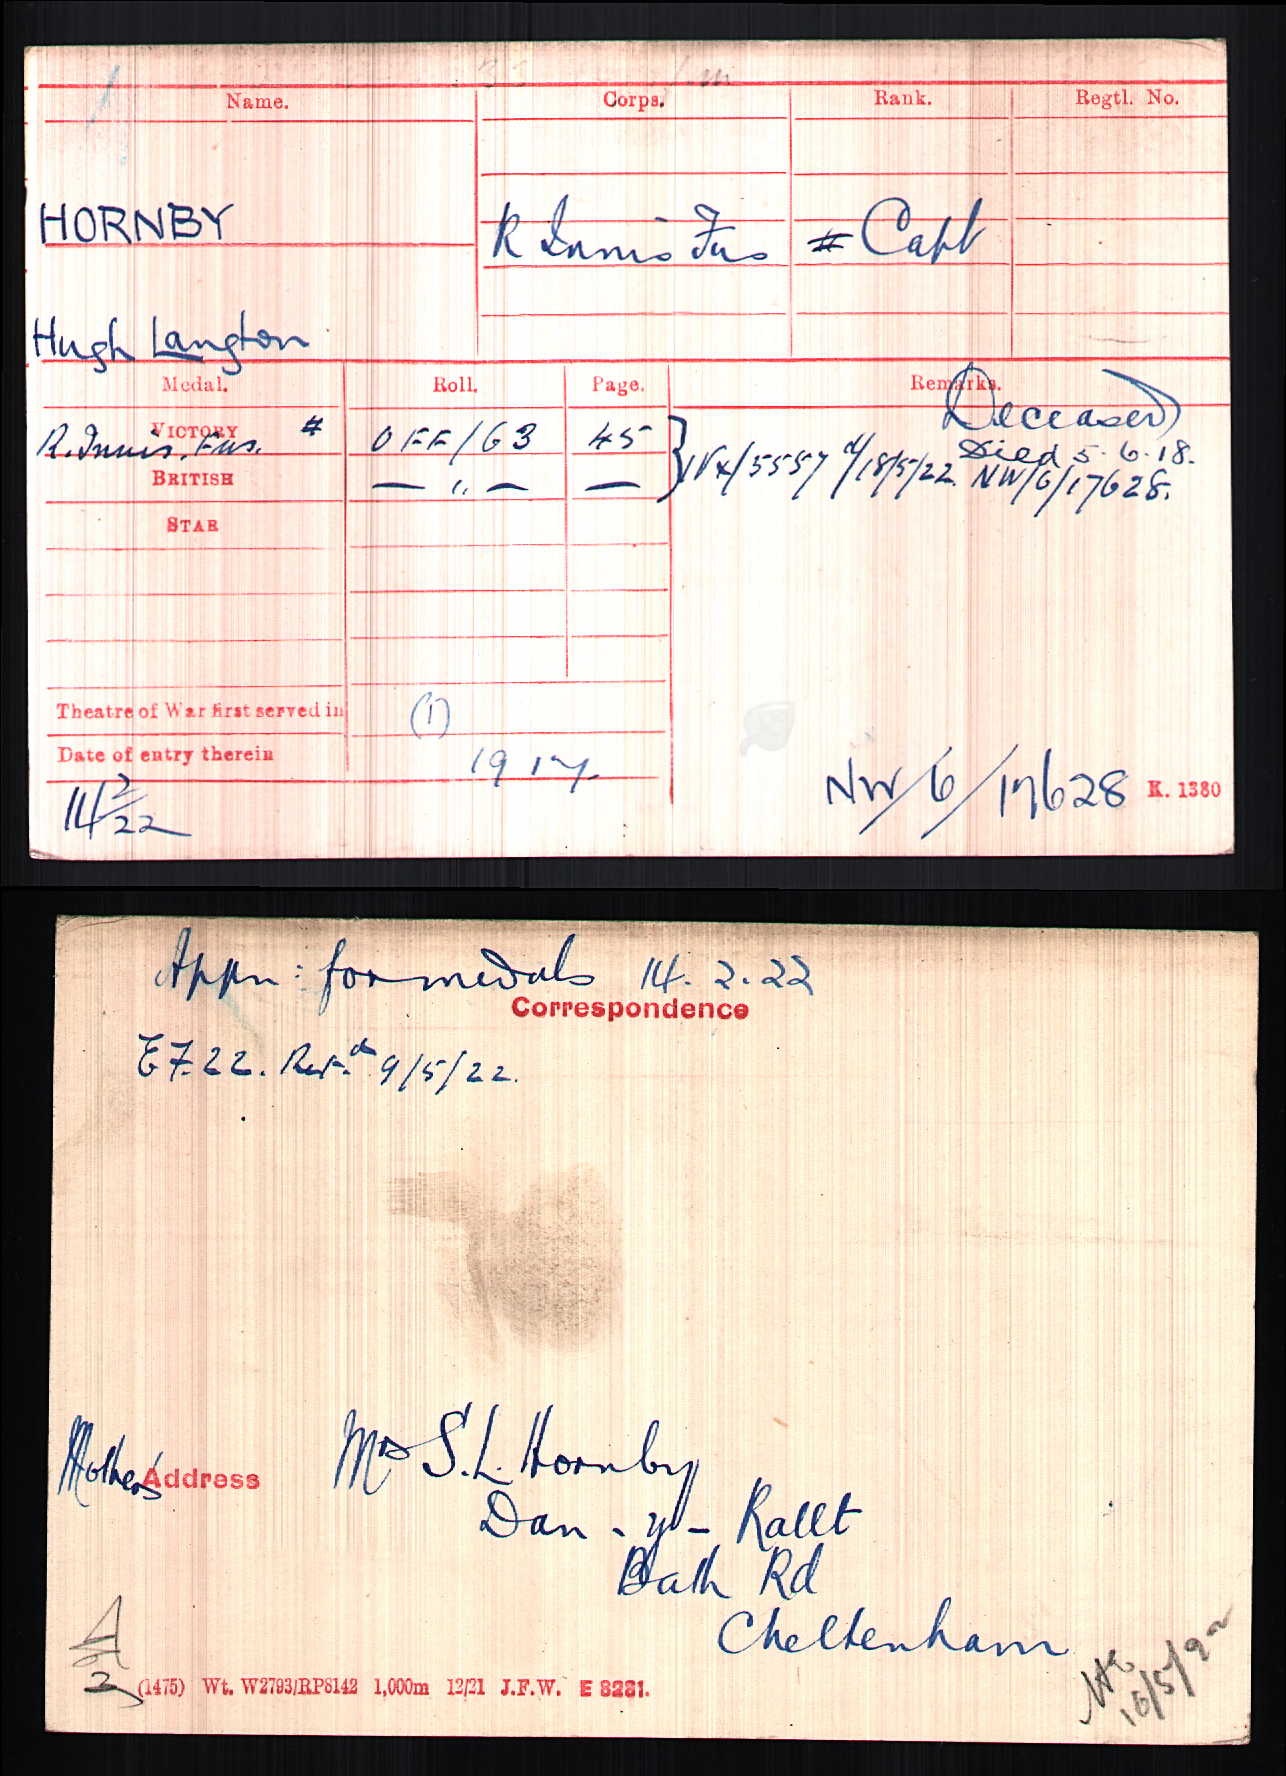 Name. Corps. Rank. Regtl. No.
HORNBY
R Innis Fus # Capt
Hugh Langton
Medal. Roll. Page. Remarks.
Deceased
VICTORY
R. Innis. Fus. # OFF/63 45
Died 5.6.18.
BRITISH — " — —
IVX/5557 d/18/5/22. NW/6/17628.
STAR
Theatre of War first served in (1)
Date of entry therein 1917
14/2/22
NW/6/17628 K. 1380
Appn: for medals 14.2.22
Correspondence
EF.22. Ret.d 9/5/22.
Mother's Address Mrs S.L. Hornby
Dan-y-Rallt
Bath Rd
Cheltenham
2
16/5/22
(1475) Wt. W2793/RP8142 1,000m 12/21 J.F.W. E 8231.